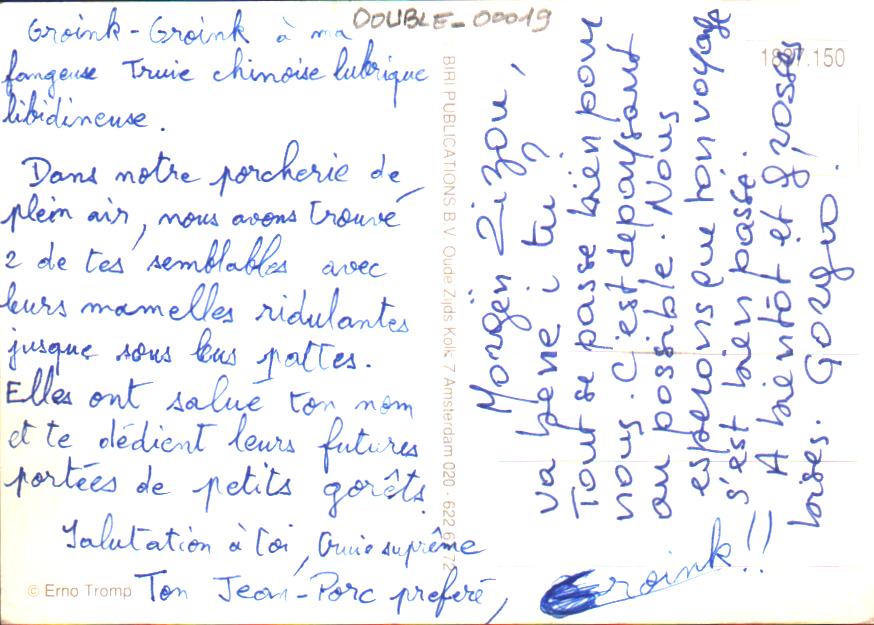 DOUBLE-00019
Groink-Groink à ma
fangeuse Truie chinoise lubrique
libidineuse.
Dans notre porcherie de
plein air, nous avons trouvé
2 de tes semblables avec
leurs mamelles ridulantes
jusque sous leurs pattes.
Elles ont salué ton nom
et te dédient leurs futures
portées de petits gorêts.
Salutation à toi, truie suprême
Ton Jean-Porc preferé,
Groink!!
Morgën Zizou,
va bene i tu?
Tout se passe bien pour
nous. C'est depaysant
au possible. Nous
esperons que ton voyage
s'est bien passé.
A bientôt et grosses
bises.
BIRI PUBLICATIONS B.V. Oude Zijds Kolk 7 Amsterdam 020 - 622 6 72
.150
© Erno Tromp